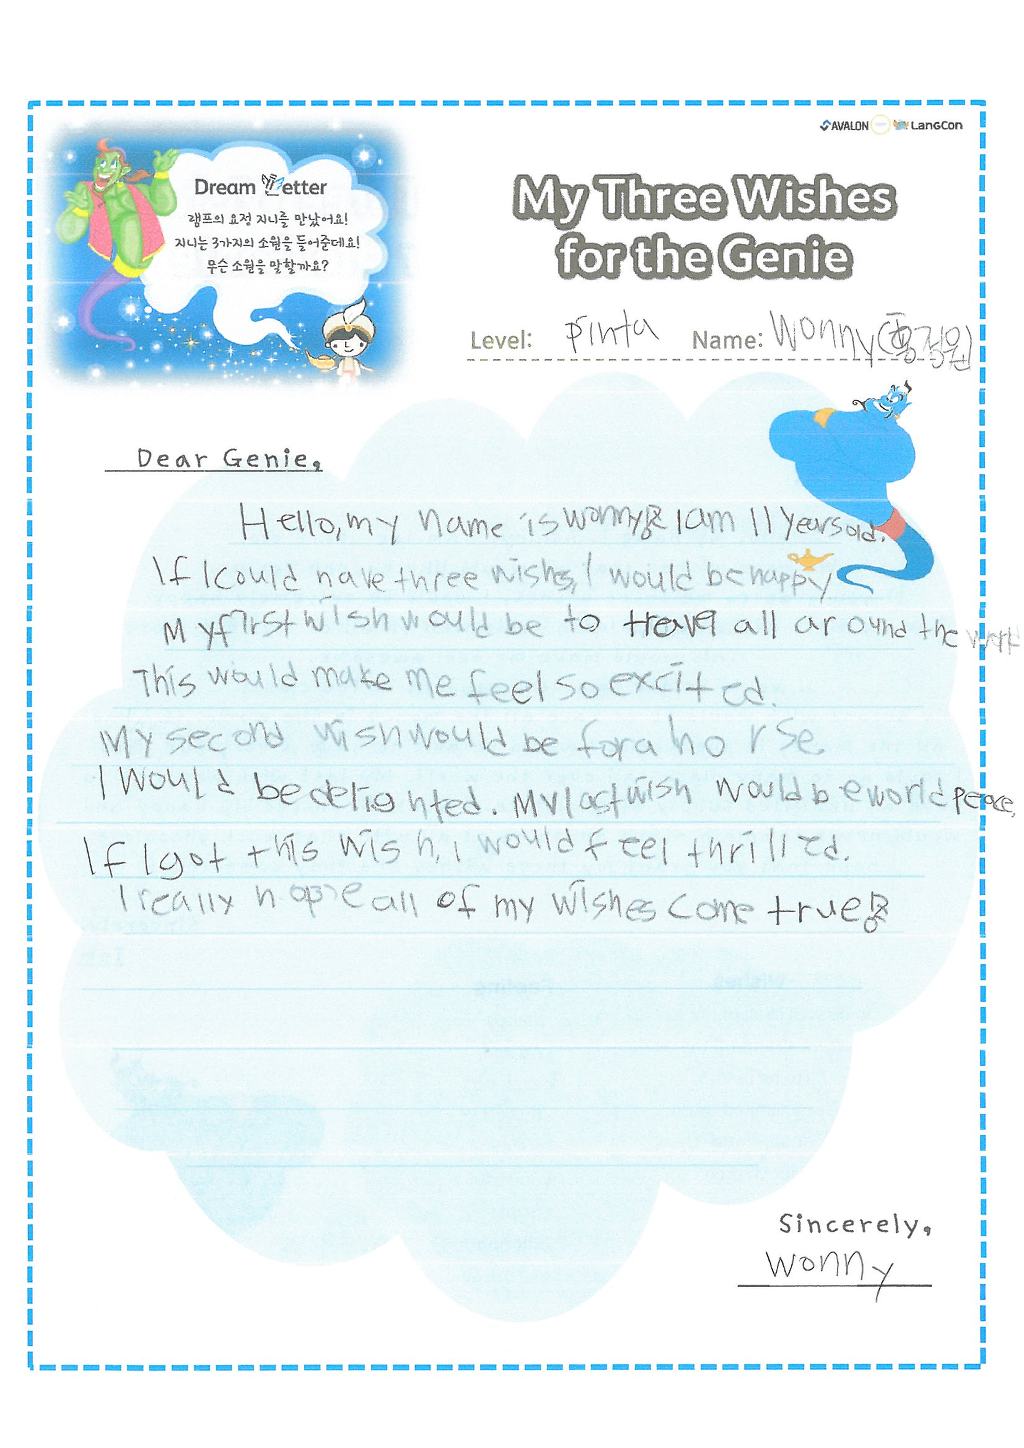 AVALON LangCon
Dream Letter
램프의 요정 지니를 만났어요!
지니는 3가지의 소원을 들어준데요!
무슨 소원을 말할까요?
My Three Wishes
for the Genie
Level: pinta Name: Wonny(홍정원)
Dear Genie,
Hello, my name is wonny! I am 11 years old.
If I could have three wishes, I would be happy
My first wish would be to travel all around the world
This would make me feel so excited.
My second wish would be for a horse.
I would be delighted. My last wish would be world peace,
If I got this wish, I would feel thrilled.
I really hope all of my wishes come true!
Sincerely,
Wonny